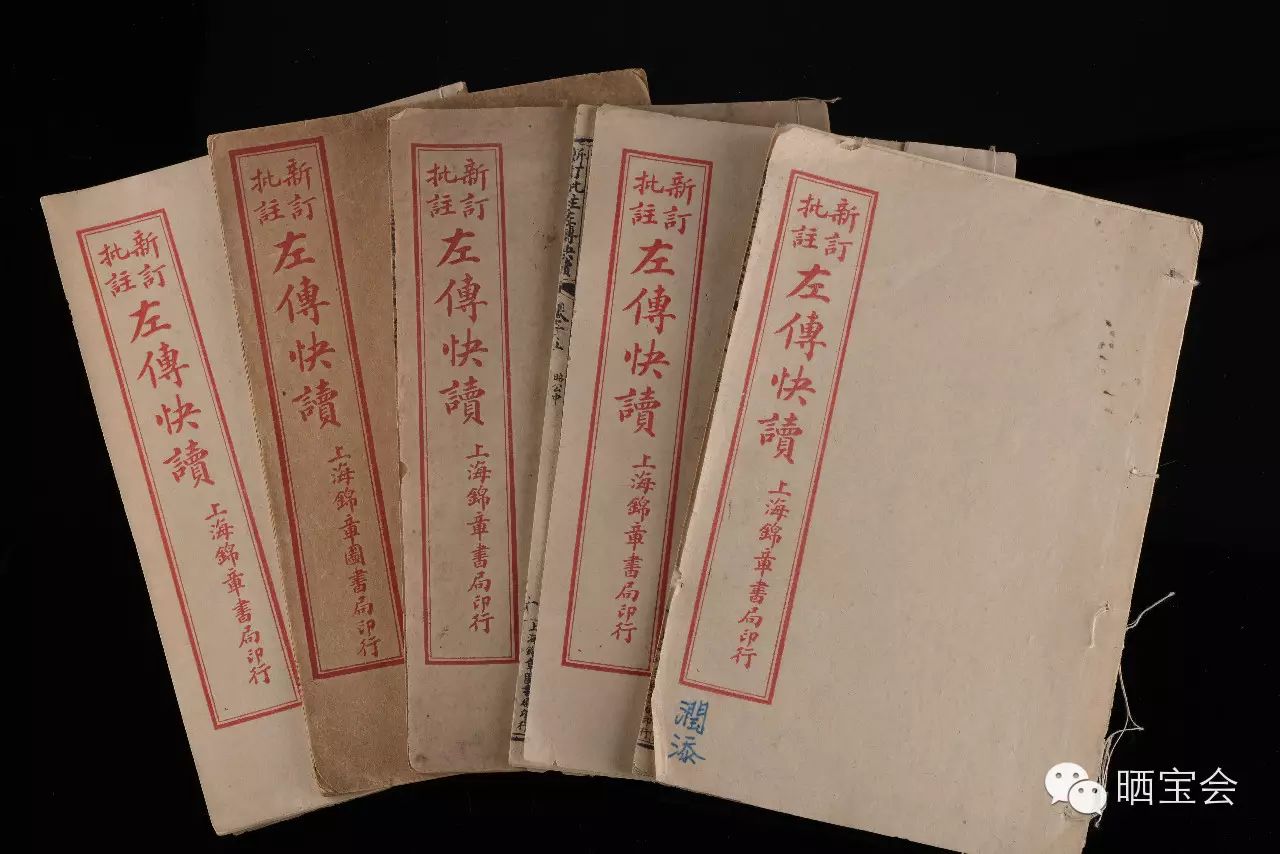 新訂
批註
左傳快讀
上海錦章書局印行
新訂
批註
左傳快讀
上海錦章圖書局印行
新訂
批註
左傳快讀
上海錦章書局印行
新訂批註左傳快讀
昭公中
上海錦章圖書局印行
新訂
批註
左傳快讀
上海錦章書局印行
新訂
批註
左傳快讀
上海錦章書局印行
潤添
晒宝会